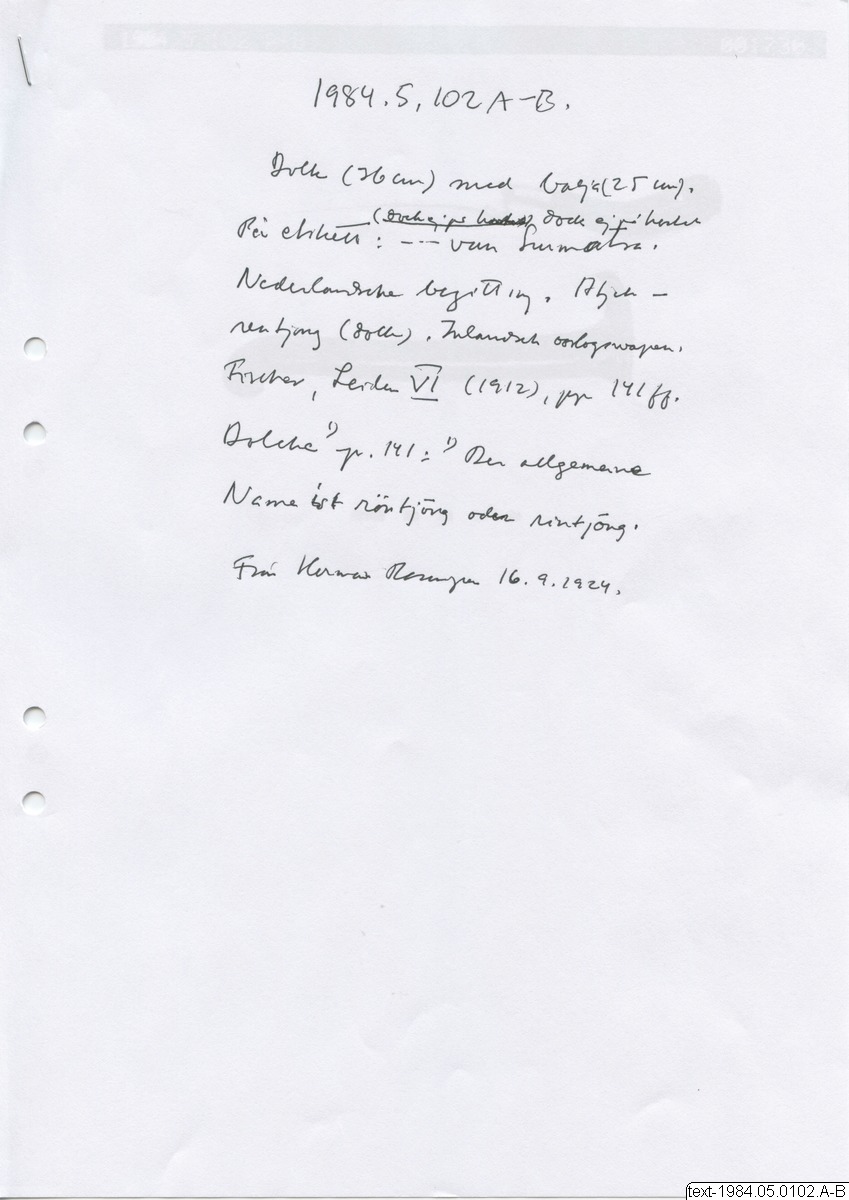 1984.5, 102 A-B.
Dolk (36 cm) med balja (25 cm).
dock ej på kortet
På etikett: --- van Sumatra.
Nederlandsche bezitting. Atjeh-
rentjong (dolk). Inlandsch oorlogswapen.
Fischer, Leiden VI (1912), pp 141 ff.
Dolche 1) p. 141: 1) Der allgemeine
Name ist röntjöng oder rintjöng.
Från Herman 16.9.1924.
text-1984.05.0102.A-B